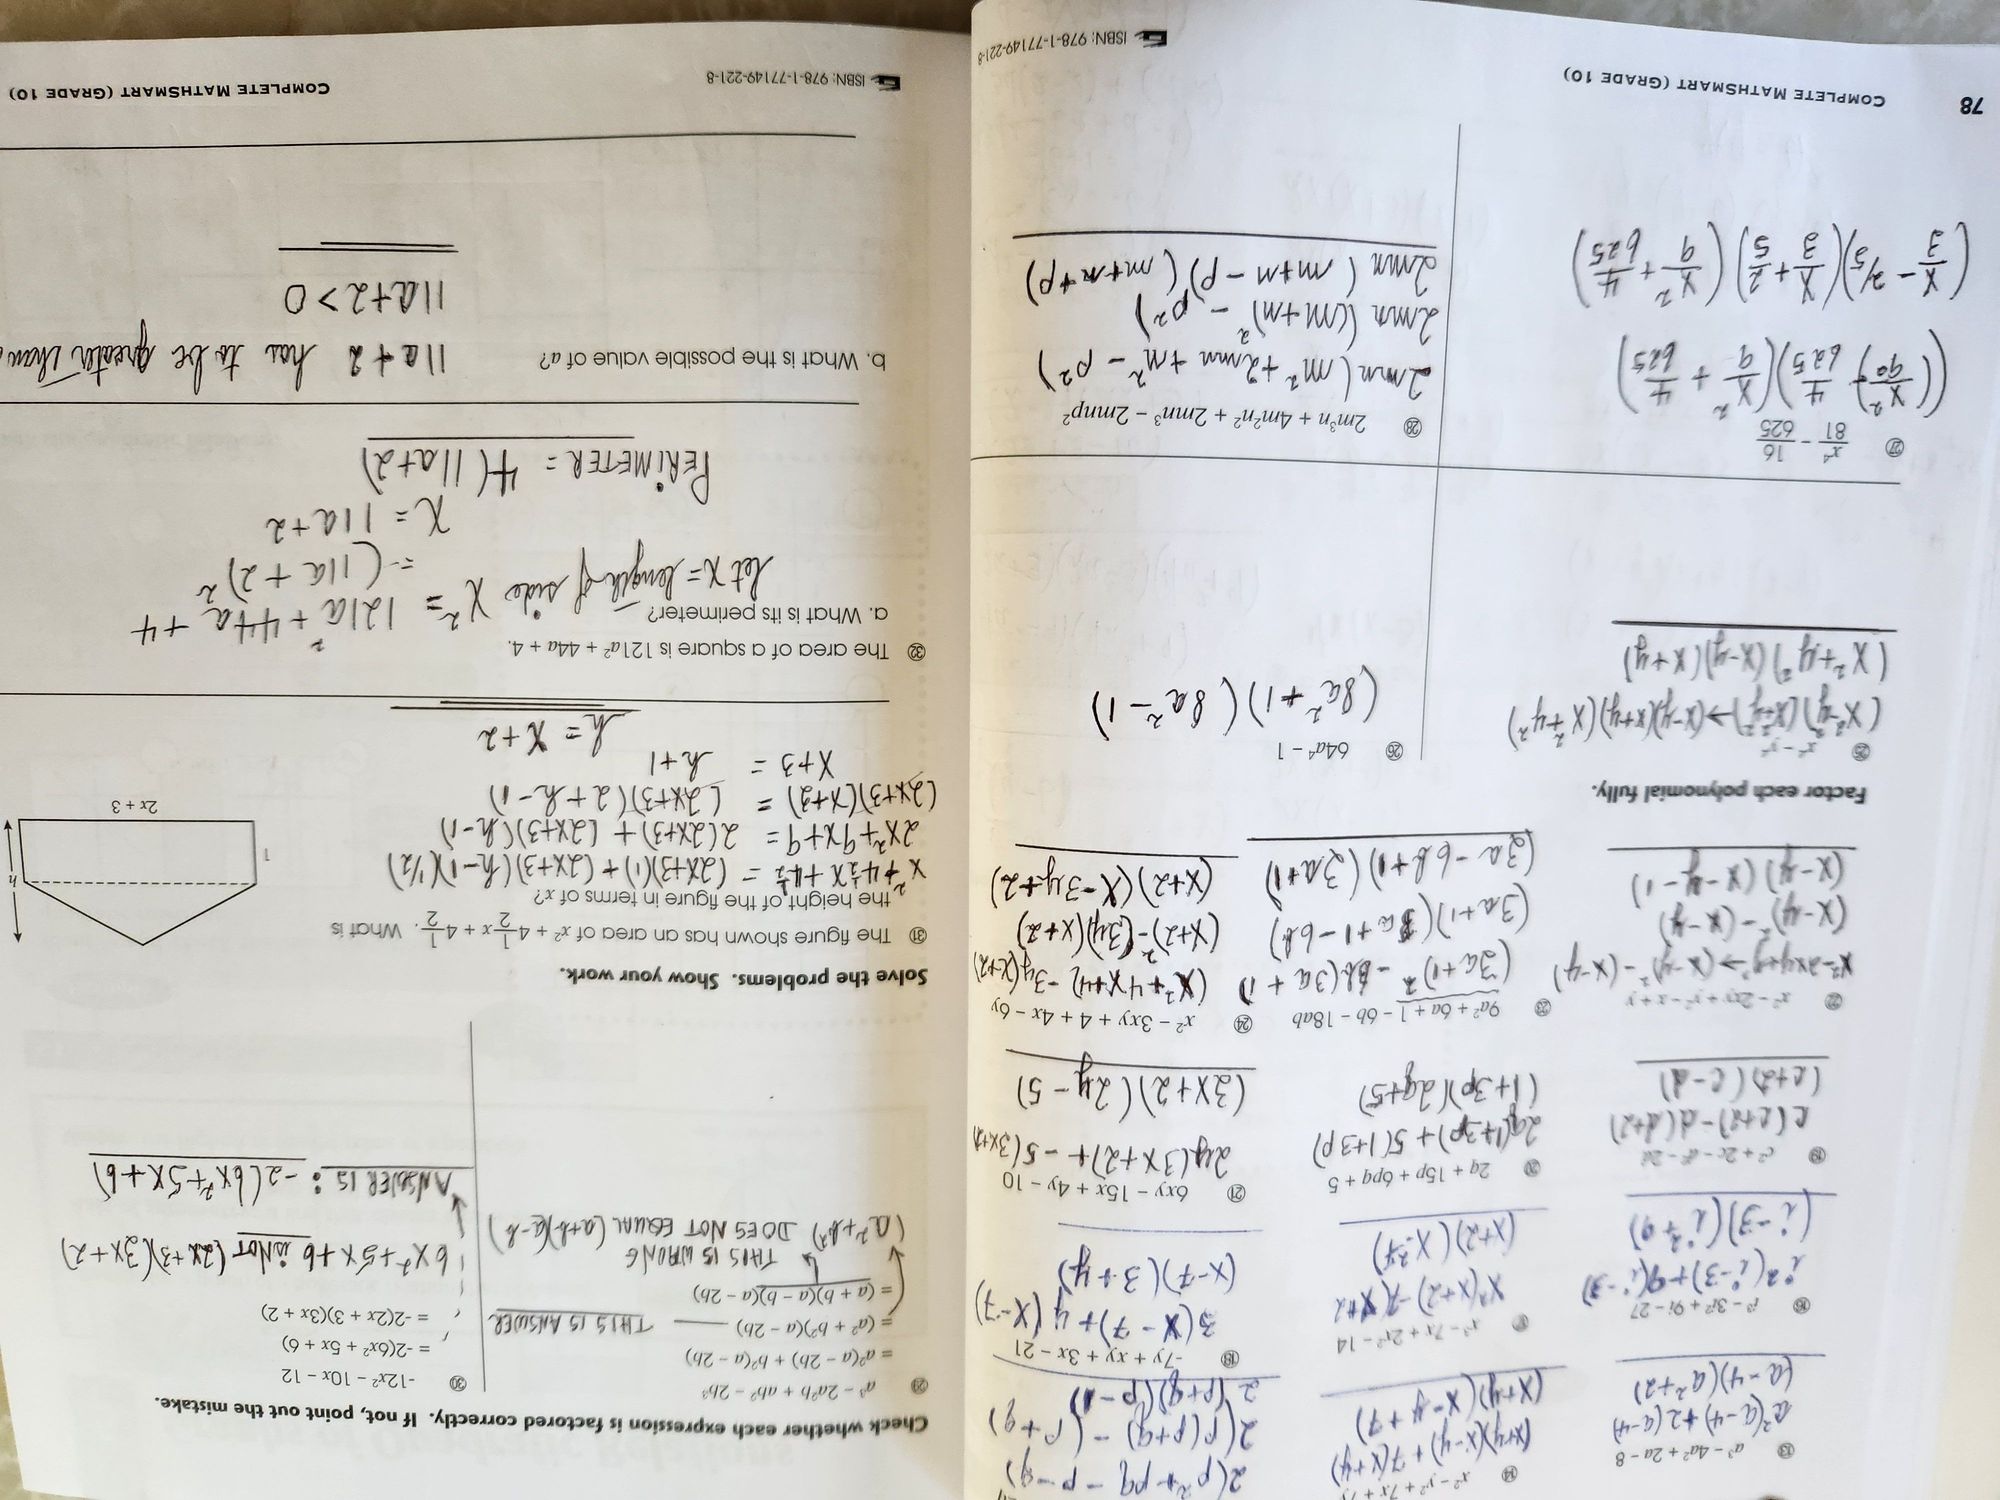 ⑬ a³ – 4a² + 2a – 8
a²(a-4)+2(a-4)
(a-4)(a²+2)
⑭ x² – y² + 7x + 7y
(x+y)(x-y)+7(x+y)
(x+y)(x-y+7)
2(p²+pq-p-q)
2(p(p+q)-(p+q)
2(p+q)(p-1)
⑯ i³ – 3i² + 9i – 27
i²(i-3)+9(i-3)
(i-3)(i²+9)
⑰ x³ – 7x + 2x² – 14
x²(x+2)-7(x+2
(x+2)(x²-7)
⑱ -7y + xy + 3x – 21
3(x-7)+y(x-7)
(x-7)(3+y)
⑲ c² + 2c – cd – 2d
c(c+2)-d(c+2)
(c+2)(c-d)
⑳ 2q + 15p + 6pq + 5
2q(1+3p)+5(1+3p)
(1+3p)(2q+5)
㉑ 6xy – 15x + 4y – 10
2y(3x+2)+-5(3x+2)
(3x+2)(2y-5)
㉒ x² – 2xy + y² – x + y
x²-2xy+y²→(x-y)²-(x-y)
(x-y)²-(x-y)
(x-y)(x-y-1)
㉓ 9a² + 6a + 1 – 6b – 18ab
(3a+1)²-6b(3a+1)
(3a+1)(3a+1-6b)
(3a-6b+1)(3a+1)
㉔ x² – 3xy + 4 + 4x – 6y
(x²+4x+4)-3y(x+2)
(x+2)²-(3y)(x+2)
(x+2)(x-3y+2)
Factor each polynomial fully.
㉕ x⁴ – y⁴
(x²-y²)(x²+y²)→(x-y)(x+y)(x²+y²)
(x²+y²)(x-y)(x+y)
㉖ 64a⁴ – 1
(8a²+1)(8a²-1)
㉗ x⁴/81 – 16/625
(x/3-2/5)(x/3+2/5)(x²/9+4/625)
㉘ 2m³n + 4m²n² + 2mn³ – 2mnp²
2mn(m²+2mn+n²-p²)
2mn((m+n)²-p²)
2mn(m+n-p)(m+n+p)
78
COMPLETE MATHSMART (GRADE 10)
ISBN: 978-1-77149-221-8
Check whether each expression is factored correctly. If not, point out the mistake.
㉙ a³ – 2a²b + ab² – 2b³
= a²(a – 2b) + b²(a – 2b)
= (a² + b²)(a – 2b) THIS IS ANSWER
= (a + b)(a – b)(a – 2b)
THIS IS WRONG
(a²+b²) DOES NOT EQUAL (a+b)(a-b)
㉚ -12x² – 10x – 12
= -2(6x² + 5x + 6)
= -2(2x + 3)(3x + 2)
6x²+5x+6 is NOT (2x+3)(3x+2)
ANSWER IS: -2(6x²+5x+6)
Solve the problems. Show your work.
㉛ The figure shown has an area of x² + 4½x + 4½. What is
the height of the figure in terms of x?
x²+4½x+4½ = (2x+3)(1)+(2x+3)(h-1)(1/2)
2x²+9x+9 = 2(2x+3)+(2x+3)(h-1)
(2x+3)(x+3) = (2x+3)(2+h-1)
x+3 = h+1
h = x+2
h
1
2x + 3
㉜ The area of a square is 121a² + 44a + 4.
a. What is its perimeter?
let x = length of side x² = 121a²+44a+4
= (11a+2)²
x = 11a+2
PERIMETER = 4(11a+2)
b. What is the possible value of a?
11a+2 has to be greater than
11a+2>0
ISBN: 978-1-77149-221-8
COMPLETE MATHSMART (GRADE 10)